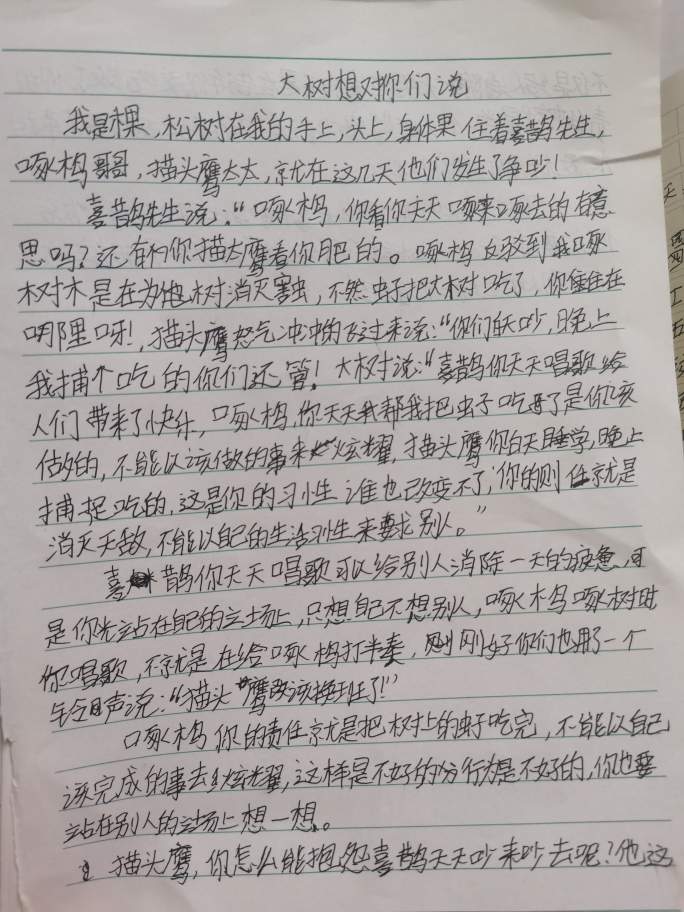 大树想对你们说
我是棵,松树在我的手上,头上,身体里住着喜鹊先生,
啄木鸟哥哥,猫头鹰太太,就在这几天他们发生了争吵!
喜鹊先生说:“啄木鸟,你看你天天啄来啄去的有意
思吗?还有你猫头鹰看你肥的。啄木鸟反驳到我啄
树木是在为他树消灭害虫,不然虫子把大树吃了,你住在
哪里呀!,猫头鹰怒气冲冲的飞过来说:“你们白天吵,晚上
我捕个吃的你们还管!大树说:“喜鹊你天天唱歌给
人们带来了快乐,啄木鸟,你天天我帮我把虫子吃了是你该
做的,不能以该做的事来炫耀,猫头鹰你白天睡学,晚上
捕捉吃的,这是你的习性谁也改变不了,你的则任就是
消灭天敌,不能以自己的生活习性来要求别人。”
喜鹊你天天唱歌可以给别人消除一天的疲惫,可
是你光站在自己的立场上,只想自己不想别人,啄木鸟啄树时
你唱歌,不就是在给啄木鸟打半奏,刚好你们也用了一个
铃声说:“猫头鹰该换班了!”
啄木鸟你的责任就是把树上的虫子吃完,不能以自己
该完成的事去炫耀,这样是不好的行为是不好的,你也要
站在别人的立场上想一想。
猫头鹰,你怎么能抱怨喜鹊天天吵来吵去呢?他这